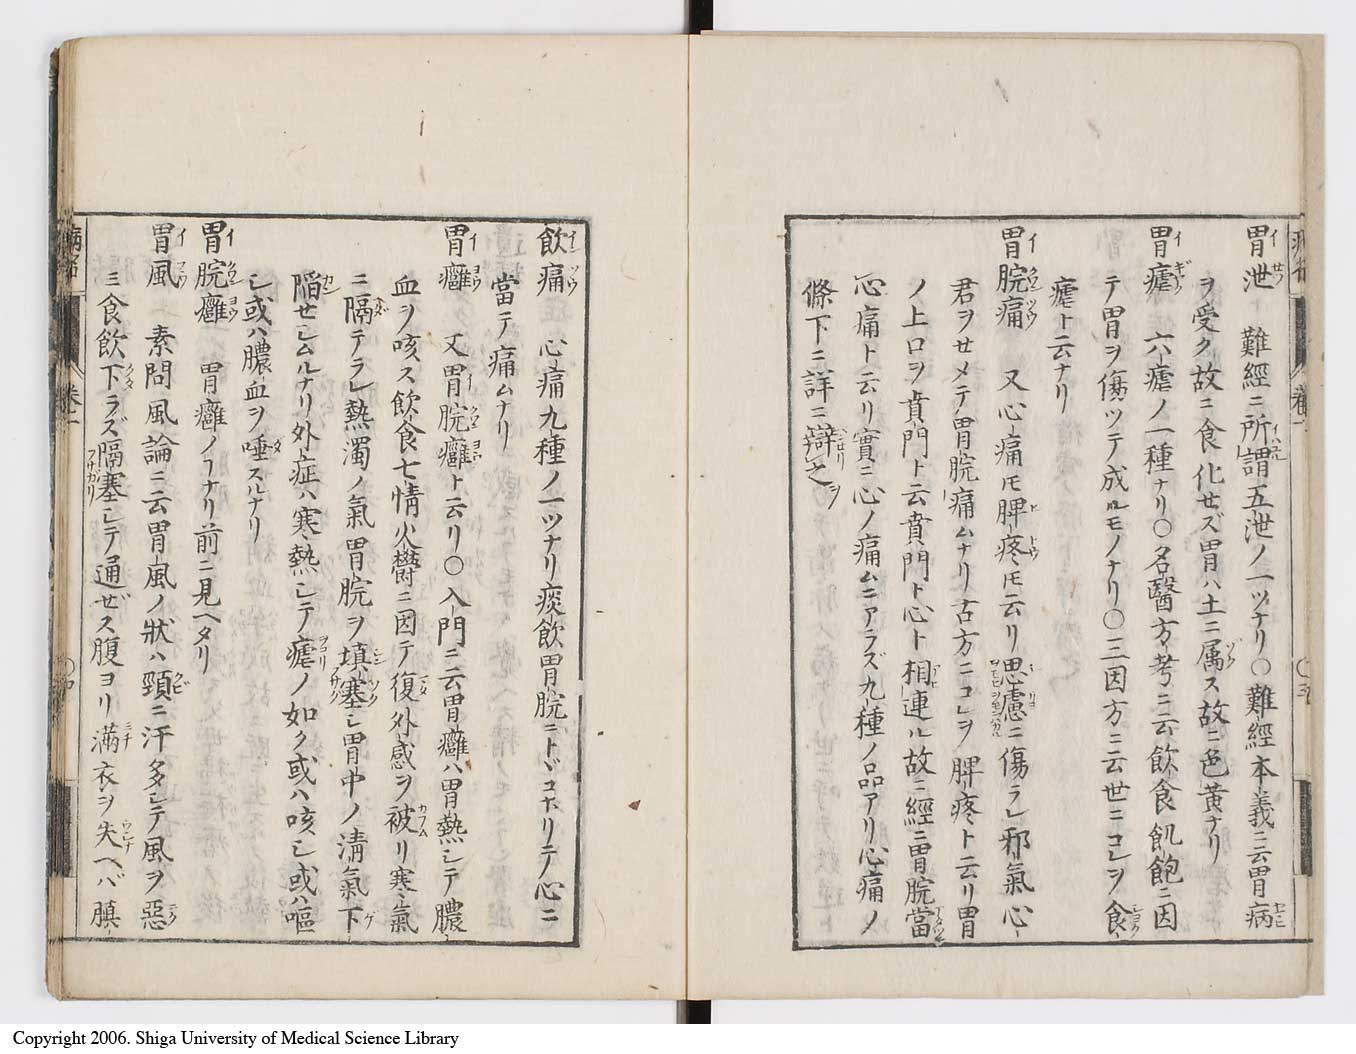 胃泄 難經ニ所謂五泄ノ一ツナリ〇難經本義ニ云胃病
ヲ受ク故ニ食化セズ胃ハ土ニ属ス故ニ色黄ナリ
胃瘧 六瘧ノ一種ナリ〇名醫方考ニ云飲食飢飽ニ因
テ胃ヲ傷ツテ成ルモノナリ〇三因方ニ云世ニコレヲ食
瘧ト云ナリ
胃脘痛 又心痛トモ脾疼トモ云リ思慮ニ傷ラレ邪氣心
君ヲせメテ胃脘痛ムナリ古方ニコレヲ脾疼ト云リ胃
ノ上口ヲ賁門ト云賁門ト心ト相連ル故ニ經ニ胃脘當
心痛ト云リ實ニ心ノ痛ムニアラズ九種ノ品アリ心痛ノ
條下ニ詳ニ辯之
飲痛 心痛九種ノ一ツナリ痰飲胃脘ニトヾコホリテ心ニ
當テ痛ムナリ
胃癰 又胃脘癰ト云リ〇入門ニ云胃癰ハ胃熱シテ膿
血ヲ咳ス飲食七情火鬱ニ因テ復外感ヲ被リ寒氣
ニ隔テラレ熱濁ノ氣胃脘ヲ填塞シ胃中ノ清氣下
陥せシムルナリ外症ハ寒熱シテ瘧ノ如ク或ハ咳シ或ハ嘔
シ或ハ膿血ヲ唾スルナリ
胃脘癰 胃癰ノコナリ前ニ見ヘタリ
胃風 素問風論ニ云胃風ノ狀ハ頸ニ汗多シテ風ヲ惡
ミ食飲下ラズ隔塞シテ通ぜス腹ヨリ滿衣ヲ失ヘバ䐜
病名
巻一
〇四